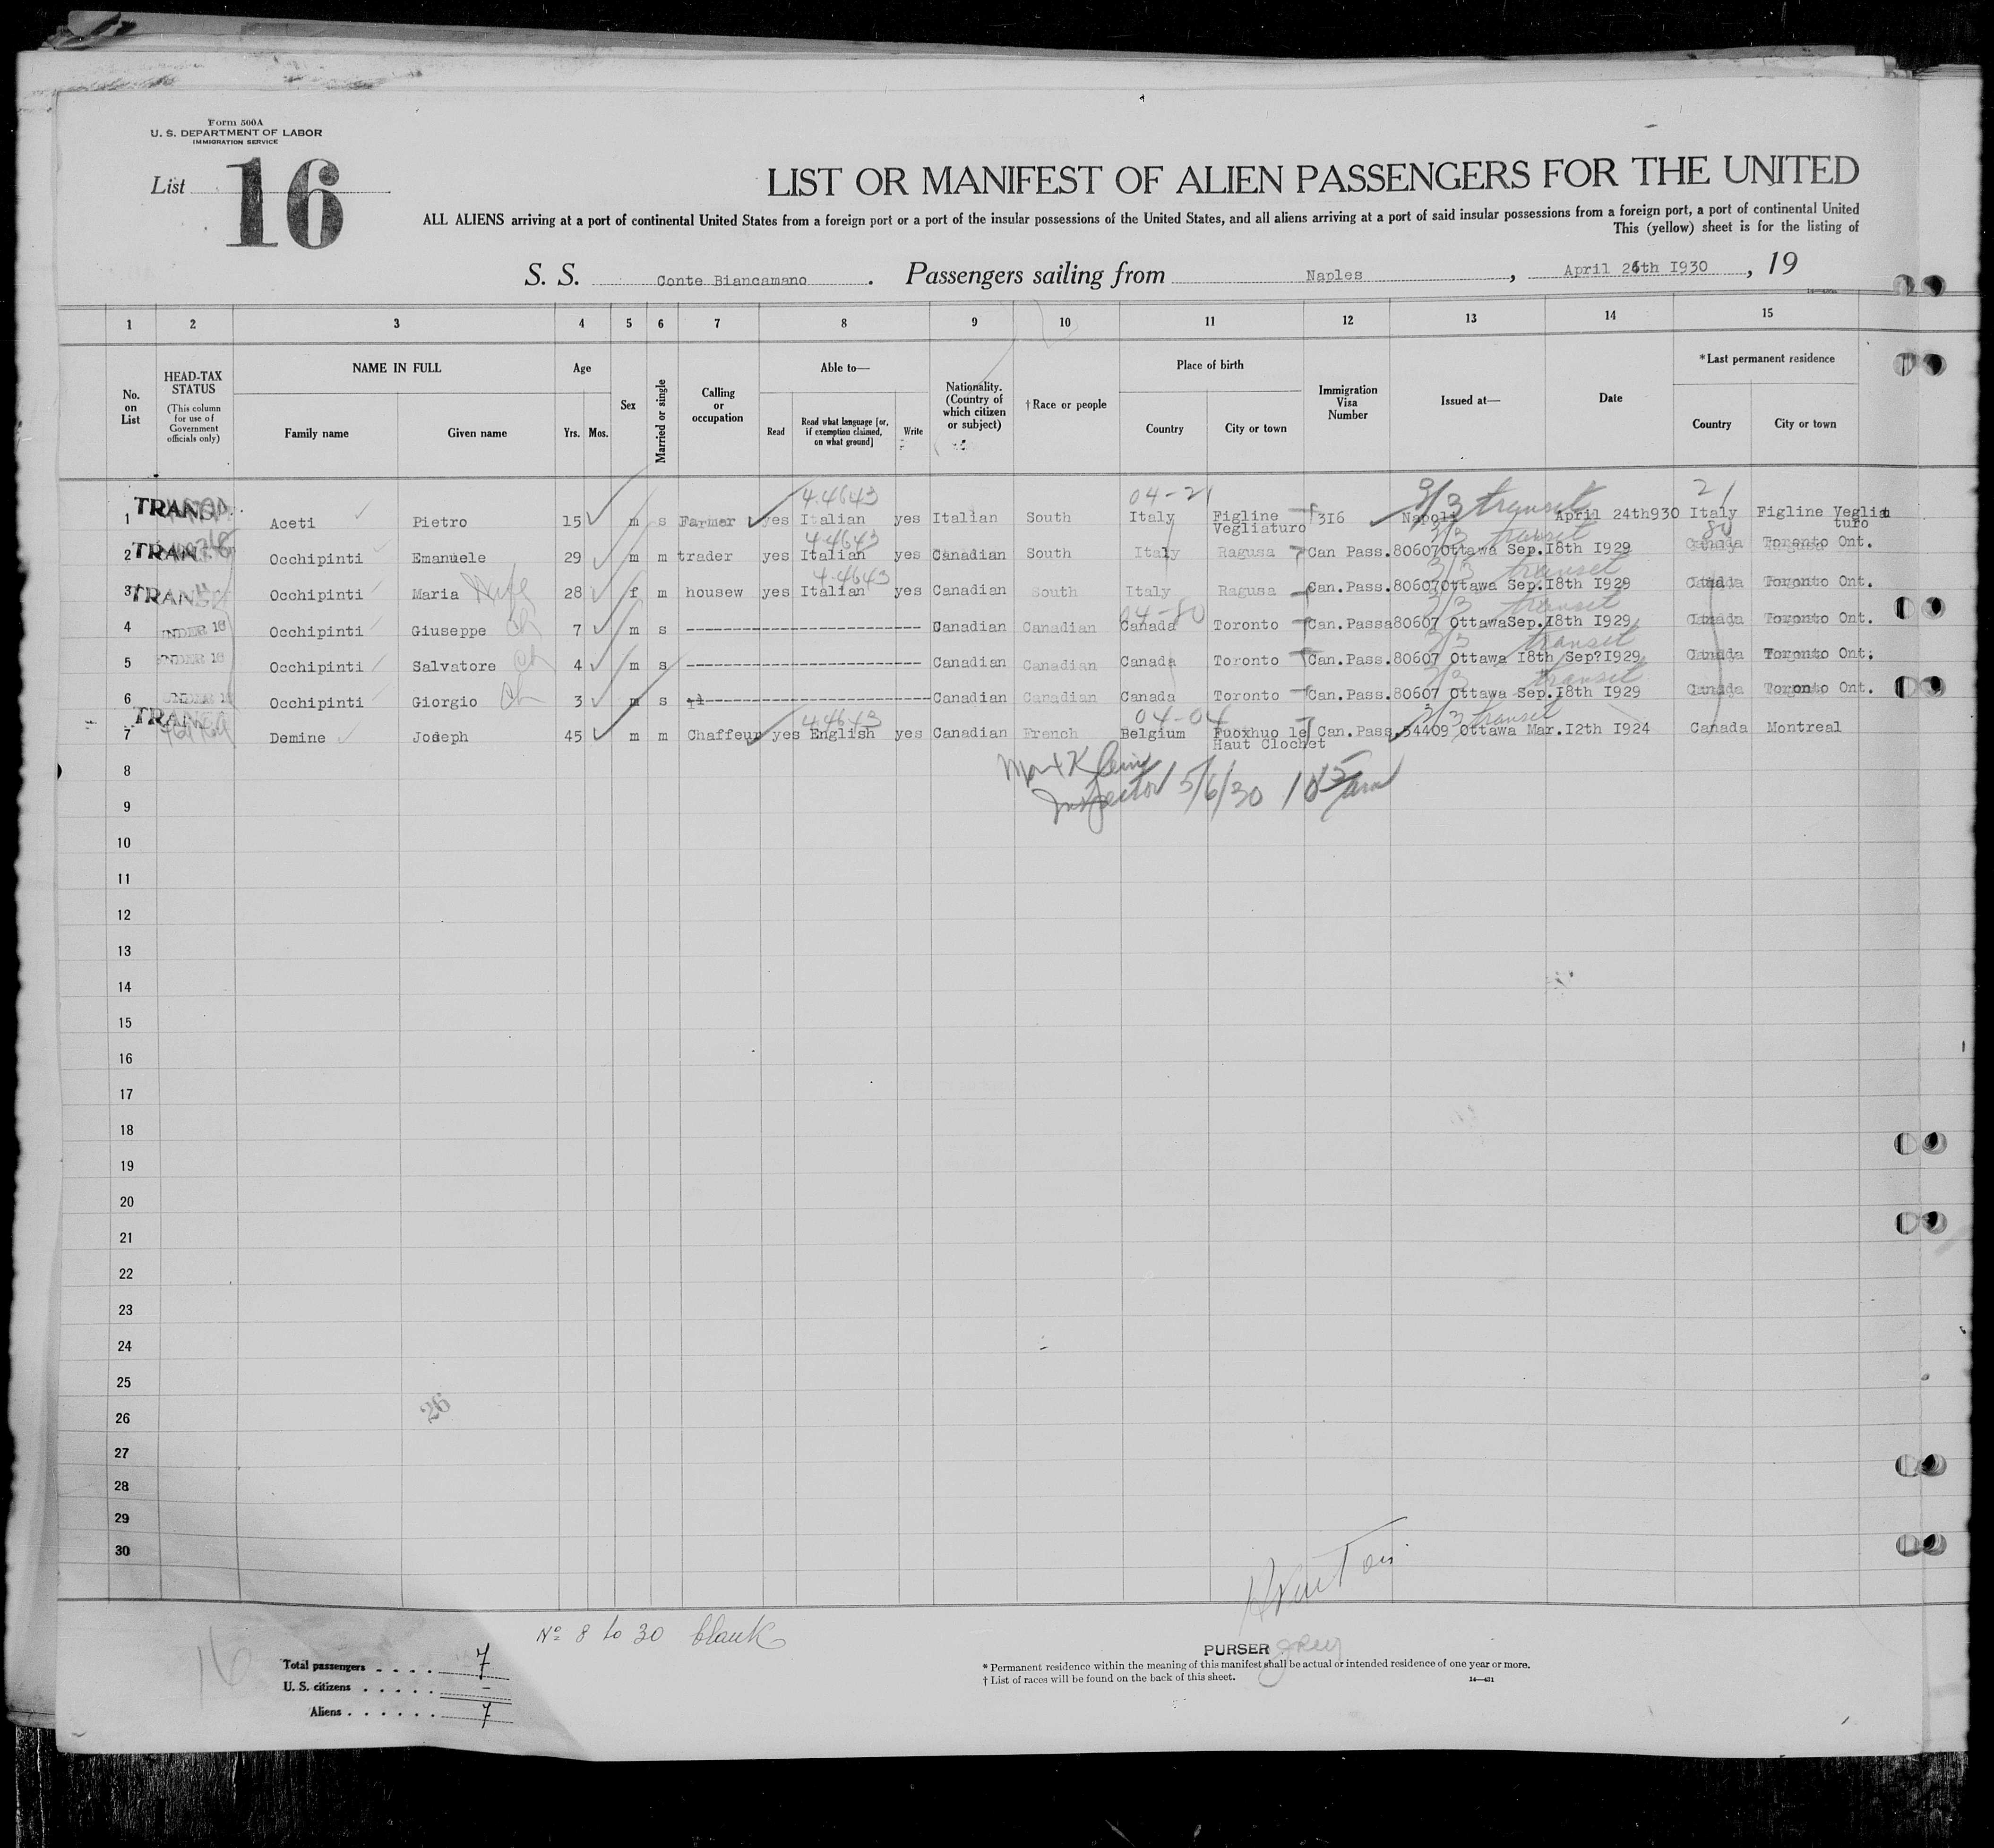 Form 500A
U. S. DEPARTMENT OF LABOR
IMMIGRATION SERVICE
List 16
LIST OR MANIFEST OF ALIEN PASSENGERS FOR THE UNITED
ALL ALIENS arriving at a port of continental United States from a foreign port or a port of the insular possessions of the United States, and all aliens arriving at a port of said insular possessions from a foreign port, a port of continental United
This (yellow) sheet is for the listing of
S. S. Conte Biancamano . Passengers sailing from Naples , April 26th I930 , 19
1 2 3 4 5 6 7 8 9 10 11 12 13 14 15
No. on List
HEAD-TAX STATUS
(This column for use of Government officials only)
NAME IN FULL
Family name Given name
Age
Yrs. Mos.
Sex
Married or single
Calling or occupation
Able to—
Read
Read what language [or, if exemption claimed, on what ground]
Write
Nationality. (Country of which citizen or subject)
†Race or people
Place of birth
Country City or town
Immigration Visa Number
Issued at—
Date
*Last permanent residence
Country City or town
4.4643 04-21 3/3 transit 21
1 TRANS. Aceti Pietro 15 m s Farmer yes Italian yes Italian South Italy Figline Vegliaturo 3I6 Napoli April 24th930 Italy Figline Vegliaturo
4.4643 3/3 transit 80
2 TRANS. Occhipinti Emanuele 29 m m trader yes Italian yes Canadian South Italy Ragusa Can Pass.80607 Ottawa Sep.I8th I929 Canada Toronto Ont.
4.4643 3/3 transit
3 TRANS. Occhipinti Maria Wife 28 f m housew yes Italian yes Canadian South Italy Ragusa Can.Pass.80607 Ottawa Sep.I8th I929 Canada Toronto Ont.
04-80 3/3 transit
4 UNDER 16 Occhipinti Giuseppe Ch 7 m s Canadian Canadian Canada Toronto Can.Passa80607 OttawaSep.I8th I929 Canada Toronto Ont.
3/3 transit
5 UNDER 16 Occhipinti Salvatore Ch 4 m s Canadian Canadian Canada Toronto Can.Pass.80607 Ottawa I8th Sep?I929 Canada Toronto Ont.
3/3 transit
6 UNDER 16 Occhipinti Giorgio Ch 3 m s Canadian Canadian Canada Toronto Can.Pass.80607 Ottawa Sep.I8th I929 Canada Toronto Ont.
4.4643 04-04 3/3 transit
7 TRANS. Demine Joseph 45 m m Chaffeur yes English yes Canadian French Belgium Fuoxhuo le Haut Clochet Can.Pass.54409 Ottawa Mar.I2th I924 Canada Montreal
8
Inspector 5/6/30
9
10
11
12
13
14
15
16
17
18
19
20
21
22
23
24
25
26
26
27
28
29
30
No 8 to 30 blank
16
Total passengers 7
U. S. citizens –
Aliens 7
PURSER
* Permanent residence within the meaning of this manifest shall be actual or intended residence of one year or more.
† List of races will be found on the back of this sheet.
14—431